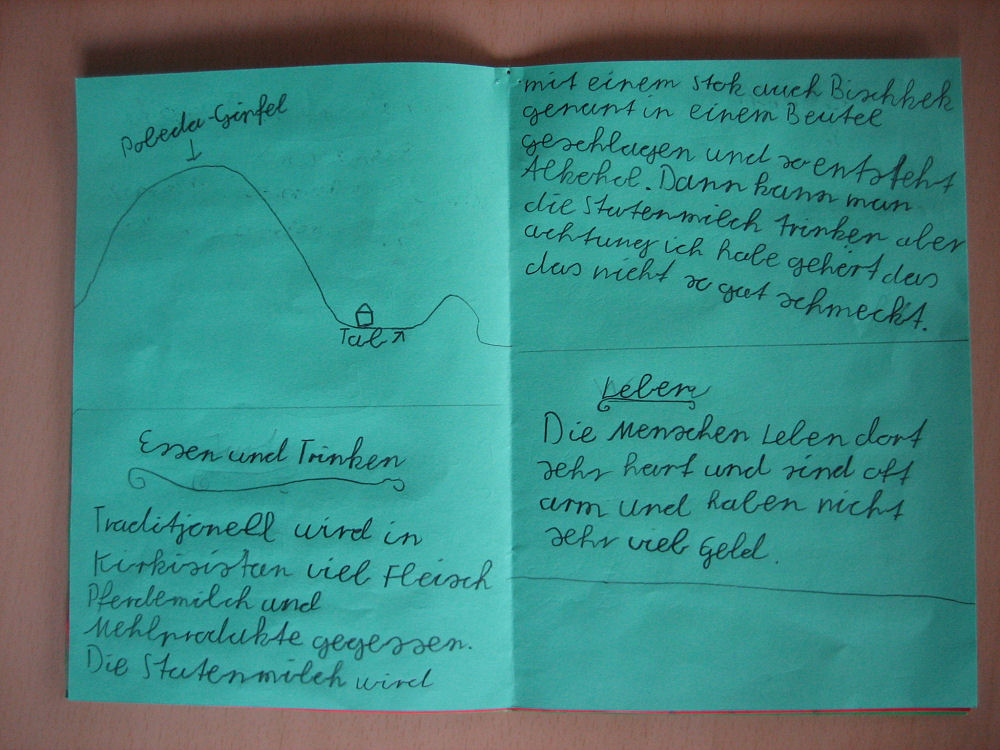 Pobeda-Ginfel
Tal
Essen und Trinken
Traditjonell wird in
Kirkisistan viel Fleisch
Pferdemilch und
Mehlprodukte gegessen.
Die Stutenmilch wird
mit einem Stok auch Bischkek
genant in einem Beutel
geschlagen und so entsteht
Alkohol. Dann kann man
die Stutenmilch trinken aber
achtung ich habe gehört das
das nicht so gut schmeckt.
Leben
Die Menschen Leben dort
sehr hart und sind oft
arm und haben nicht
sehr viel Geld.